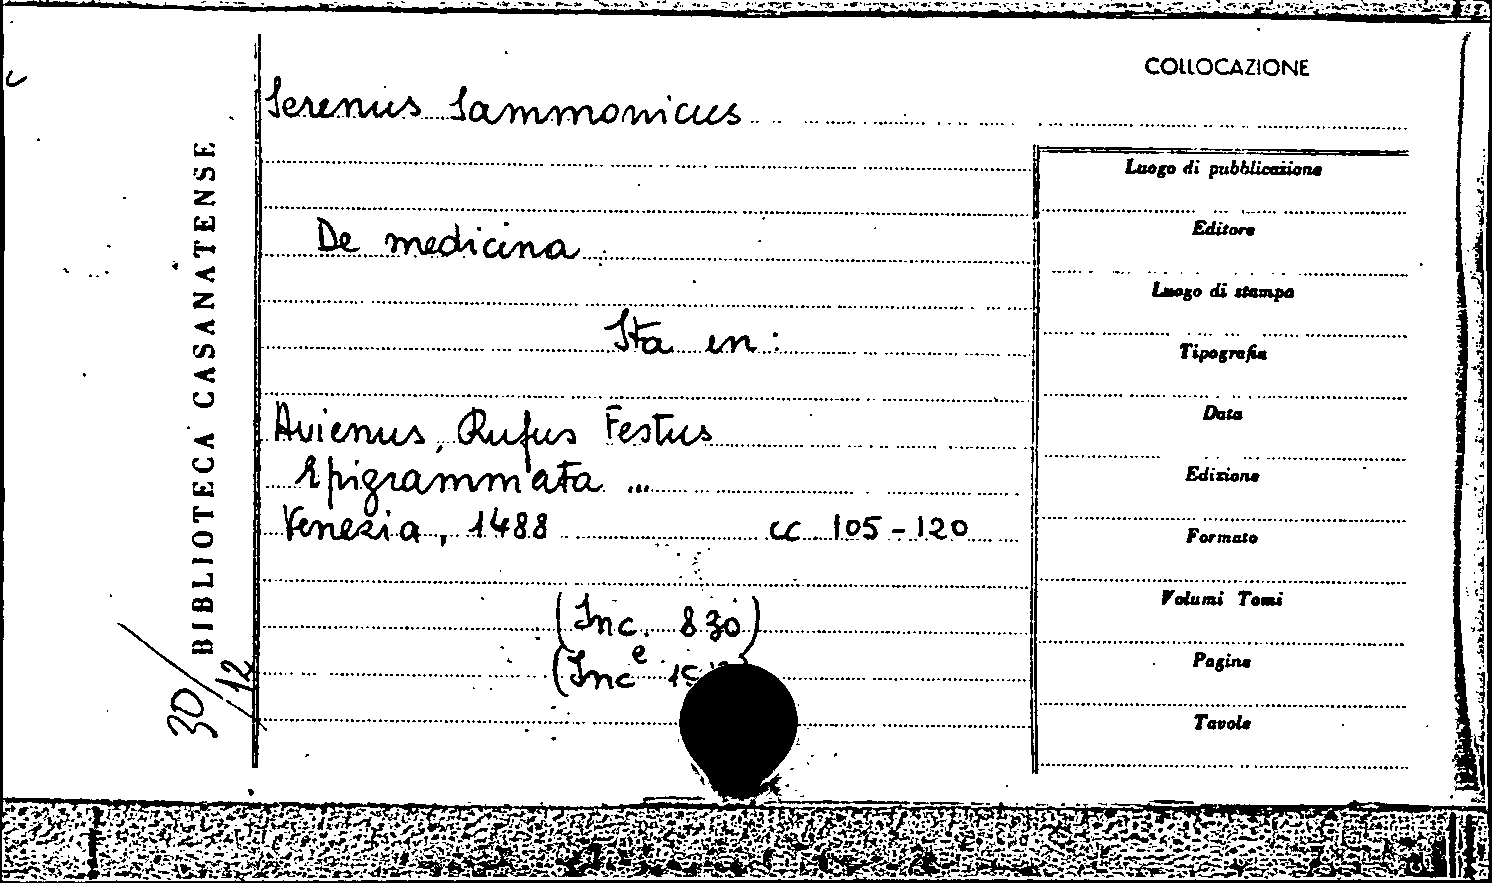 COLLOCAZIONE
Serenus Sammonicus
De medicina
Sta in:
Avienus, Rufus Festus
Epigrammata ...
Venezia, 1488 cc. 105-120
(Inc. 830)
(Inc e
BIBLIOTECA CASANATENSE
30/12
Luogo di pubblicazione
Editore
Luogo di stampa
Tipografia
Data
Edizione
Formato
Volumi Tomi
Pagine
Tavole